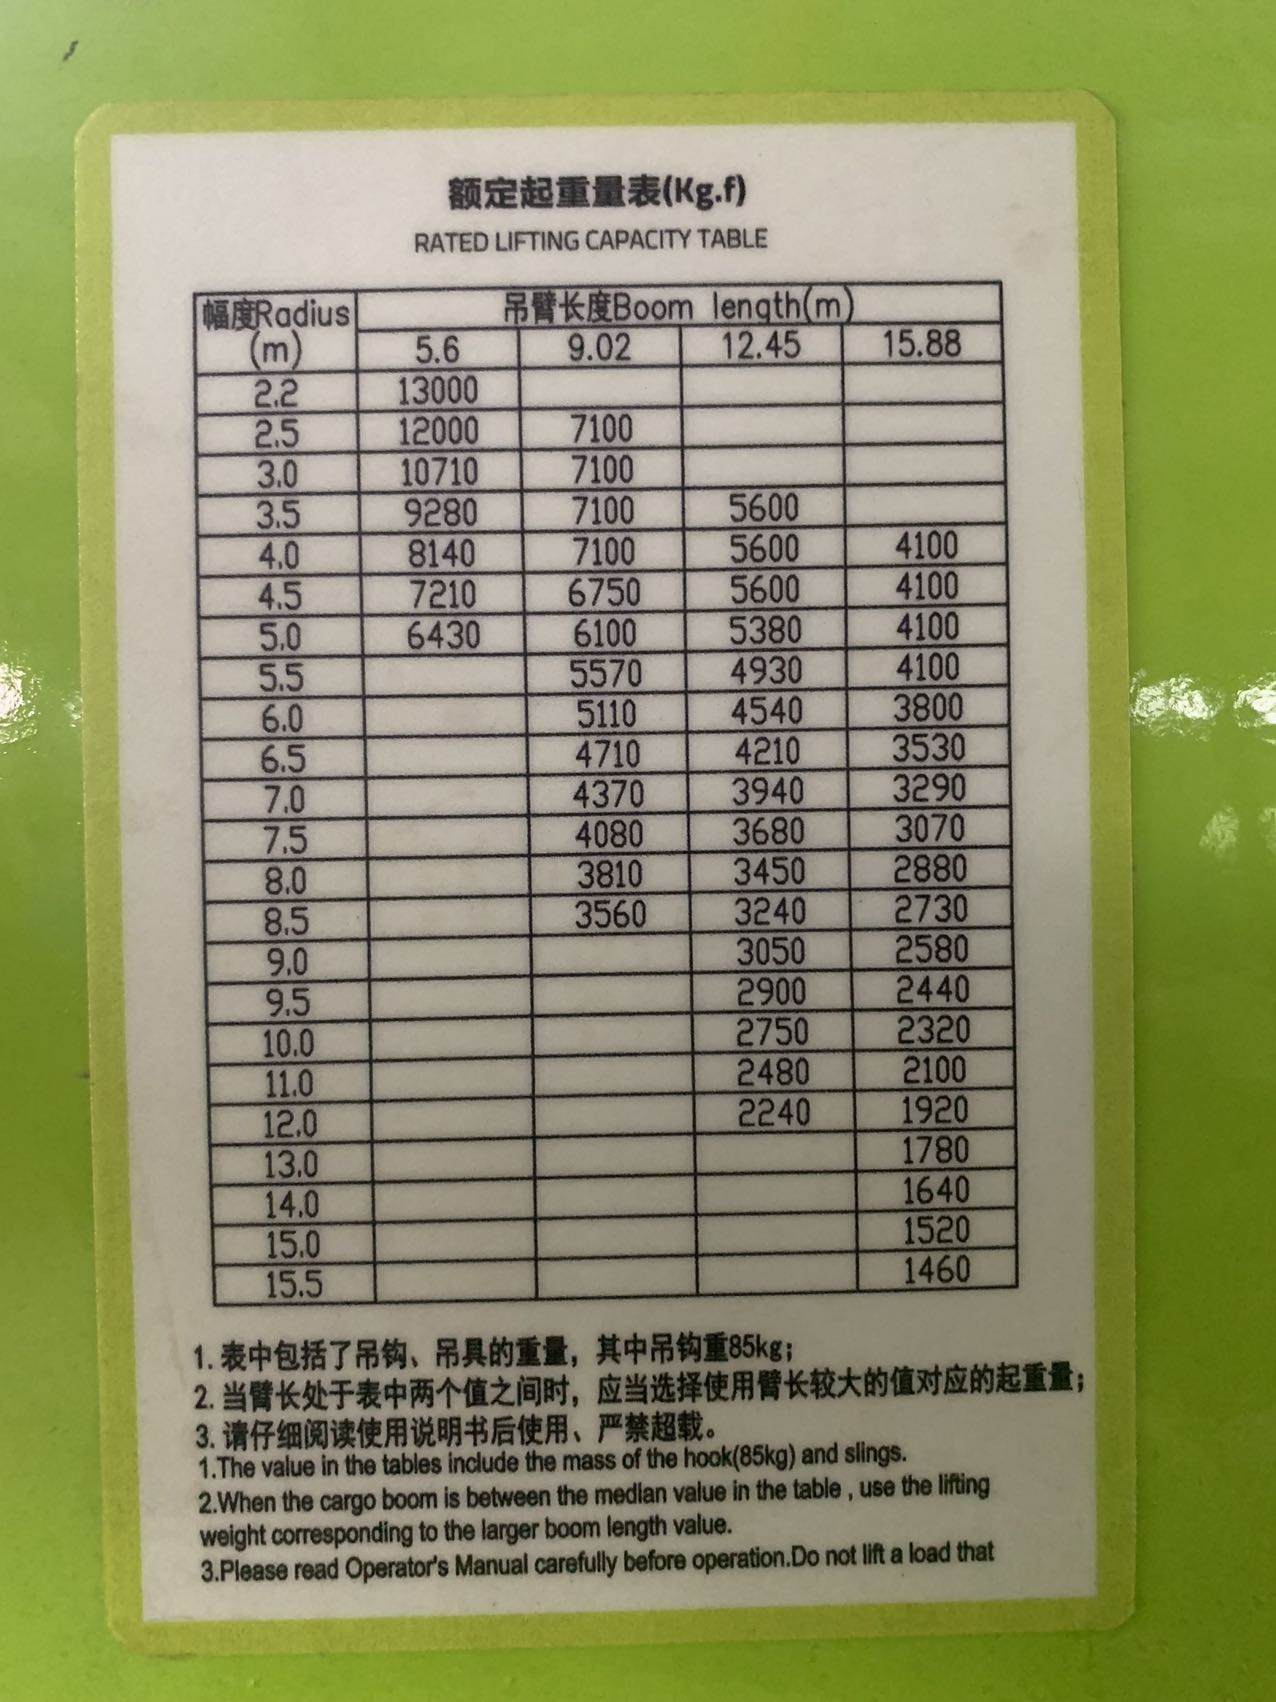 额定起重量表(Kg.f)
RATED LIFTING CAPACITY TABLE
幅度Radius (m) 吊臂长度Boom length(m)
5.6 9.02 12.45 15.88
2.2 13000
2.5 12000 7100
3.0 10710 7100
3.5 9280 7100 5600
4.0 8140 7100 5600 4100
4.5 7210 6750 5600 4100
5.0 6430 6100 5380 4100
5.5 5570 4930 4100
6.0 5110 4540 3800
6.5 4710 4210 3530
7.0 4370 3940 3290
7.5 4080 3680 3070
8.0 3810 3450 2880
8.5 3560 3240 2730
9.0 3050 2580
9.5 2900 2440
10.0 2750 2320
11.0 2480 2100
12.0 2240 1920
13.0 1780
14.0 1640
15.0 1520
15.5 1460
1. 表中包括了吊钩、吊具的重量，其中吊钩重85kg；
2. 当臂长处于表中两个值之间时，应当选择使用臂长较大的值对应的起重量；
3. 请仔细阅读使用说明书后使用、严禁超载。
1.The value in the tables include the mass of the hook(85kg) and slings.
2.When the cargo boom is between the median value in the table , use the lifting
weight corresponding to the larger boom length value.
3.Please read Operator's Manual carefully before operation.Do not lift a load that